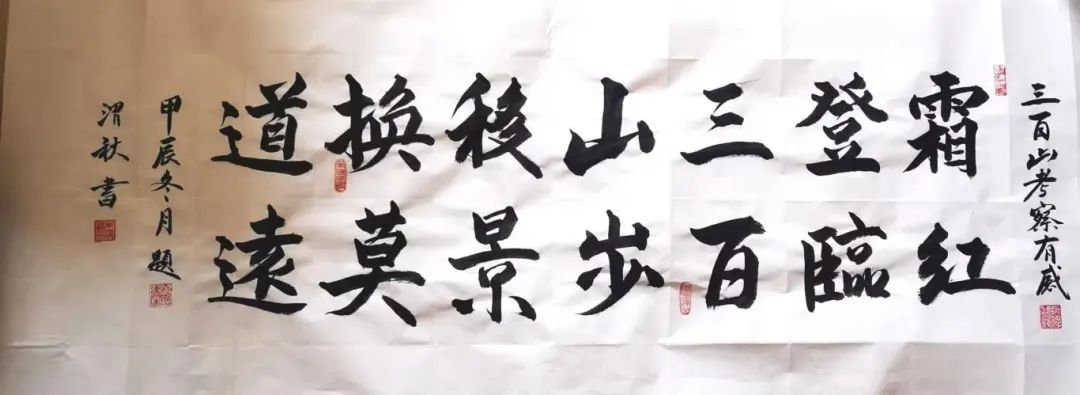 三百山考察有感
霜红
登臨
三百
山步
移景
换莫
道遠
甲辰冬月題
渭秋書